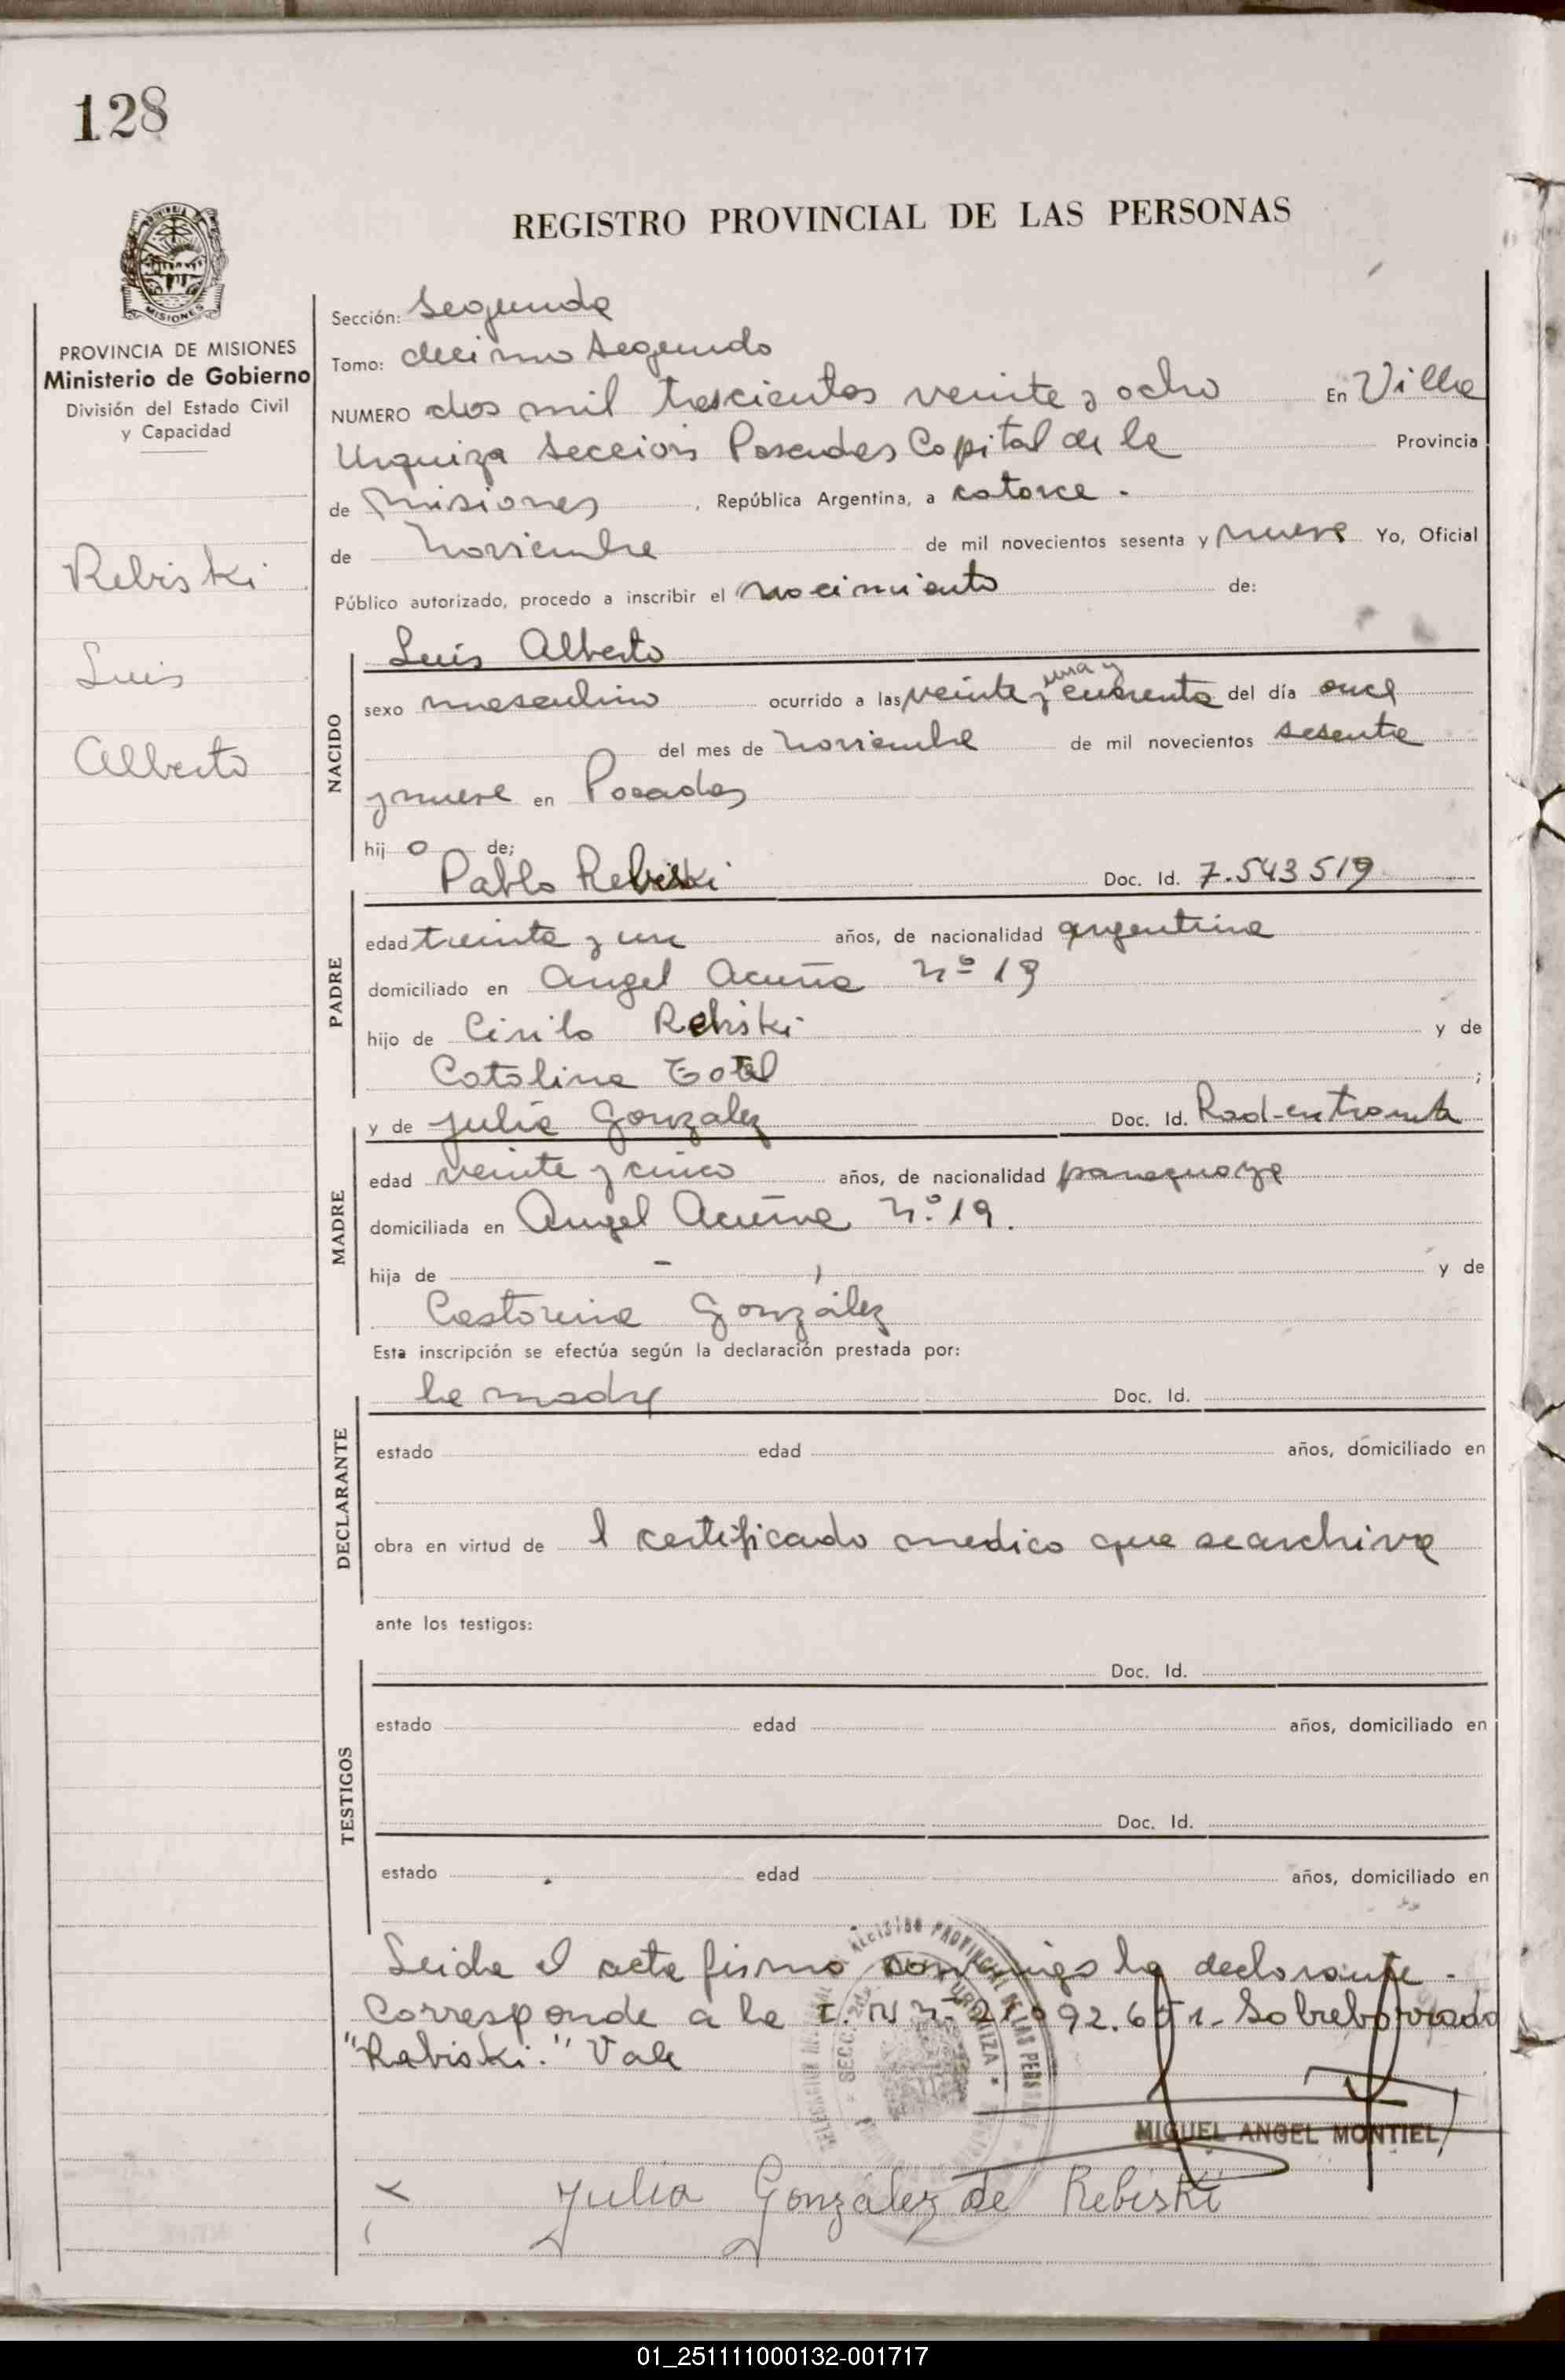 128
REGISTRO PROVINCIAL DE LAS PERSONAS
MISIONES
PROVINCIA DE MISIONES
Ministerio de Gobierno
División del Estado Civil
y Capacidad
Rebiski
Luis
Alberto
Sección: Segunda
Tomo: decimo segundo
NUMERO dos mil trescientos veinte y ocho En Villa
Urquiza Sección Posadas Capital de la Provincia
de Misiones, República Argentina, a catorce.
de Noviembre de mil novecientos sesenta y nueve Yo, Oficial
Público autorizado, procedo a inscribir el nacimiento de:
NACIDO
Luis Alberto
sexo masculino ocurrido a las veinte y una y cuarenta del día once
del mes de Noviembre de mil novecientos sesenta
y nueve en Posadas
hijo de;
PADRE
Pablo Rebiski Doc. Id. 7.543519
edad treinta y un años, de nacionalidad argentina
domiciliado en Angel Acuña Nº 19
hijo de Cirilo Rebiski y de
Catalina ;
MADRE
y de Julia Gonzalez Doc. Id. Rad-en tramite
edad veinte y cinco años, de nacionalidad paraguaya
domiciliada en Angel Acuña Nº 19.
hija de - , y de
Castorina González
Esta inscripción se efectúa según la declaración prestada por:
DECLARANTE
la madre Doc. Id.
estado edad años, domiciliado en
obra en virtud de l certificado medico que se archiva
ante los testigos:
TESTIGOS
Doc. Id.
estado edad años, domiciliado en
Doc. Id.
estado edad años, domiciliado en
Leida el acta firma conmigo la declarante.
Corresponde a la Sobreborrado
"Rebiski." Vale
MIGUEL ANGEL MONTIEL
Julia González de Rebiski
01_251111000132-001717